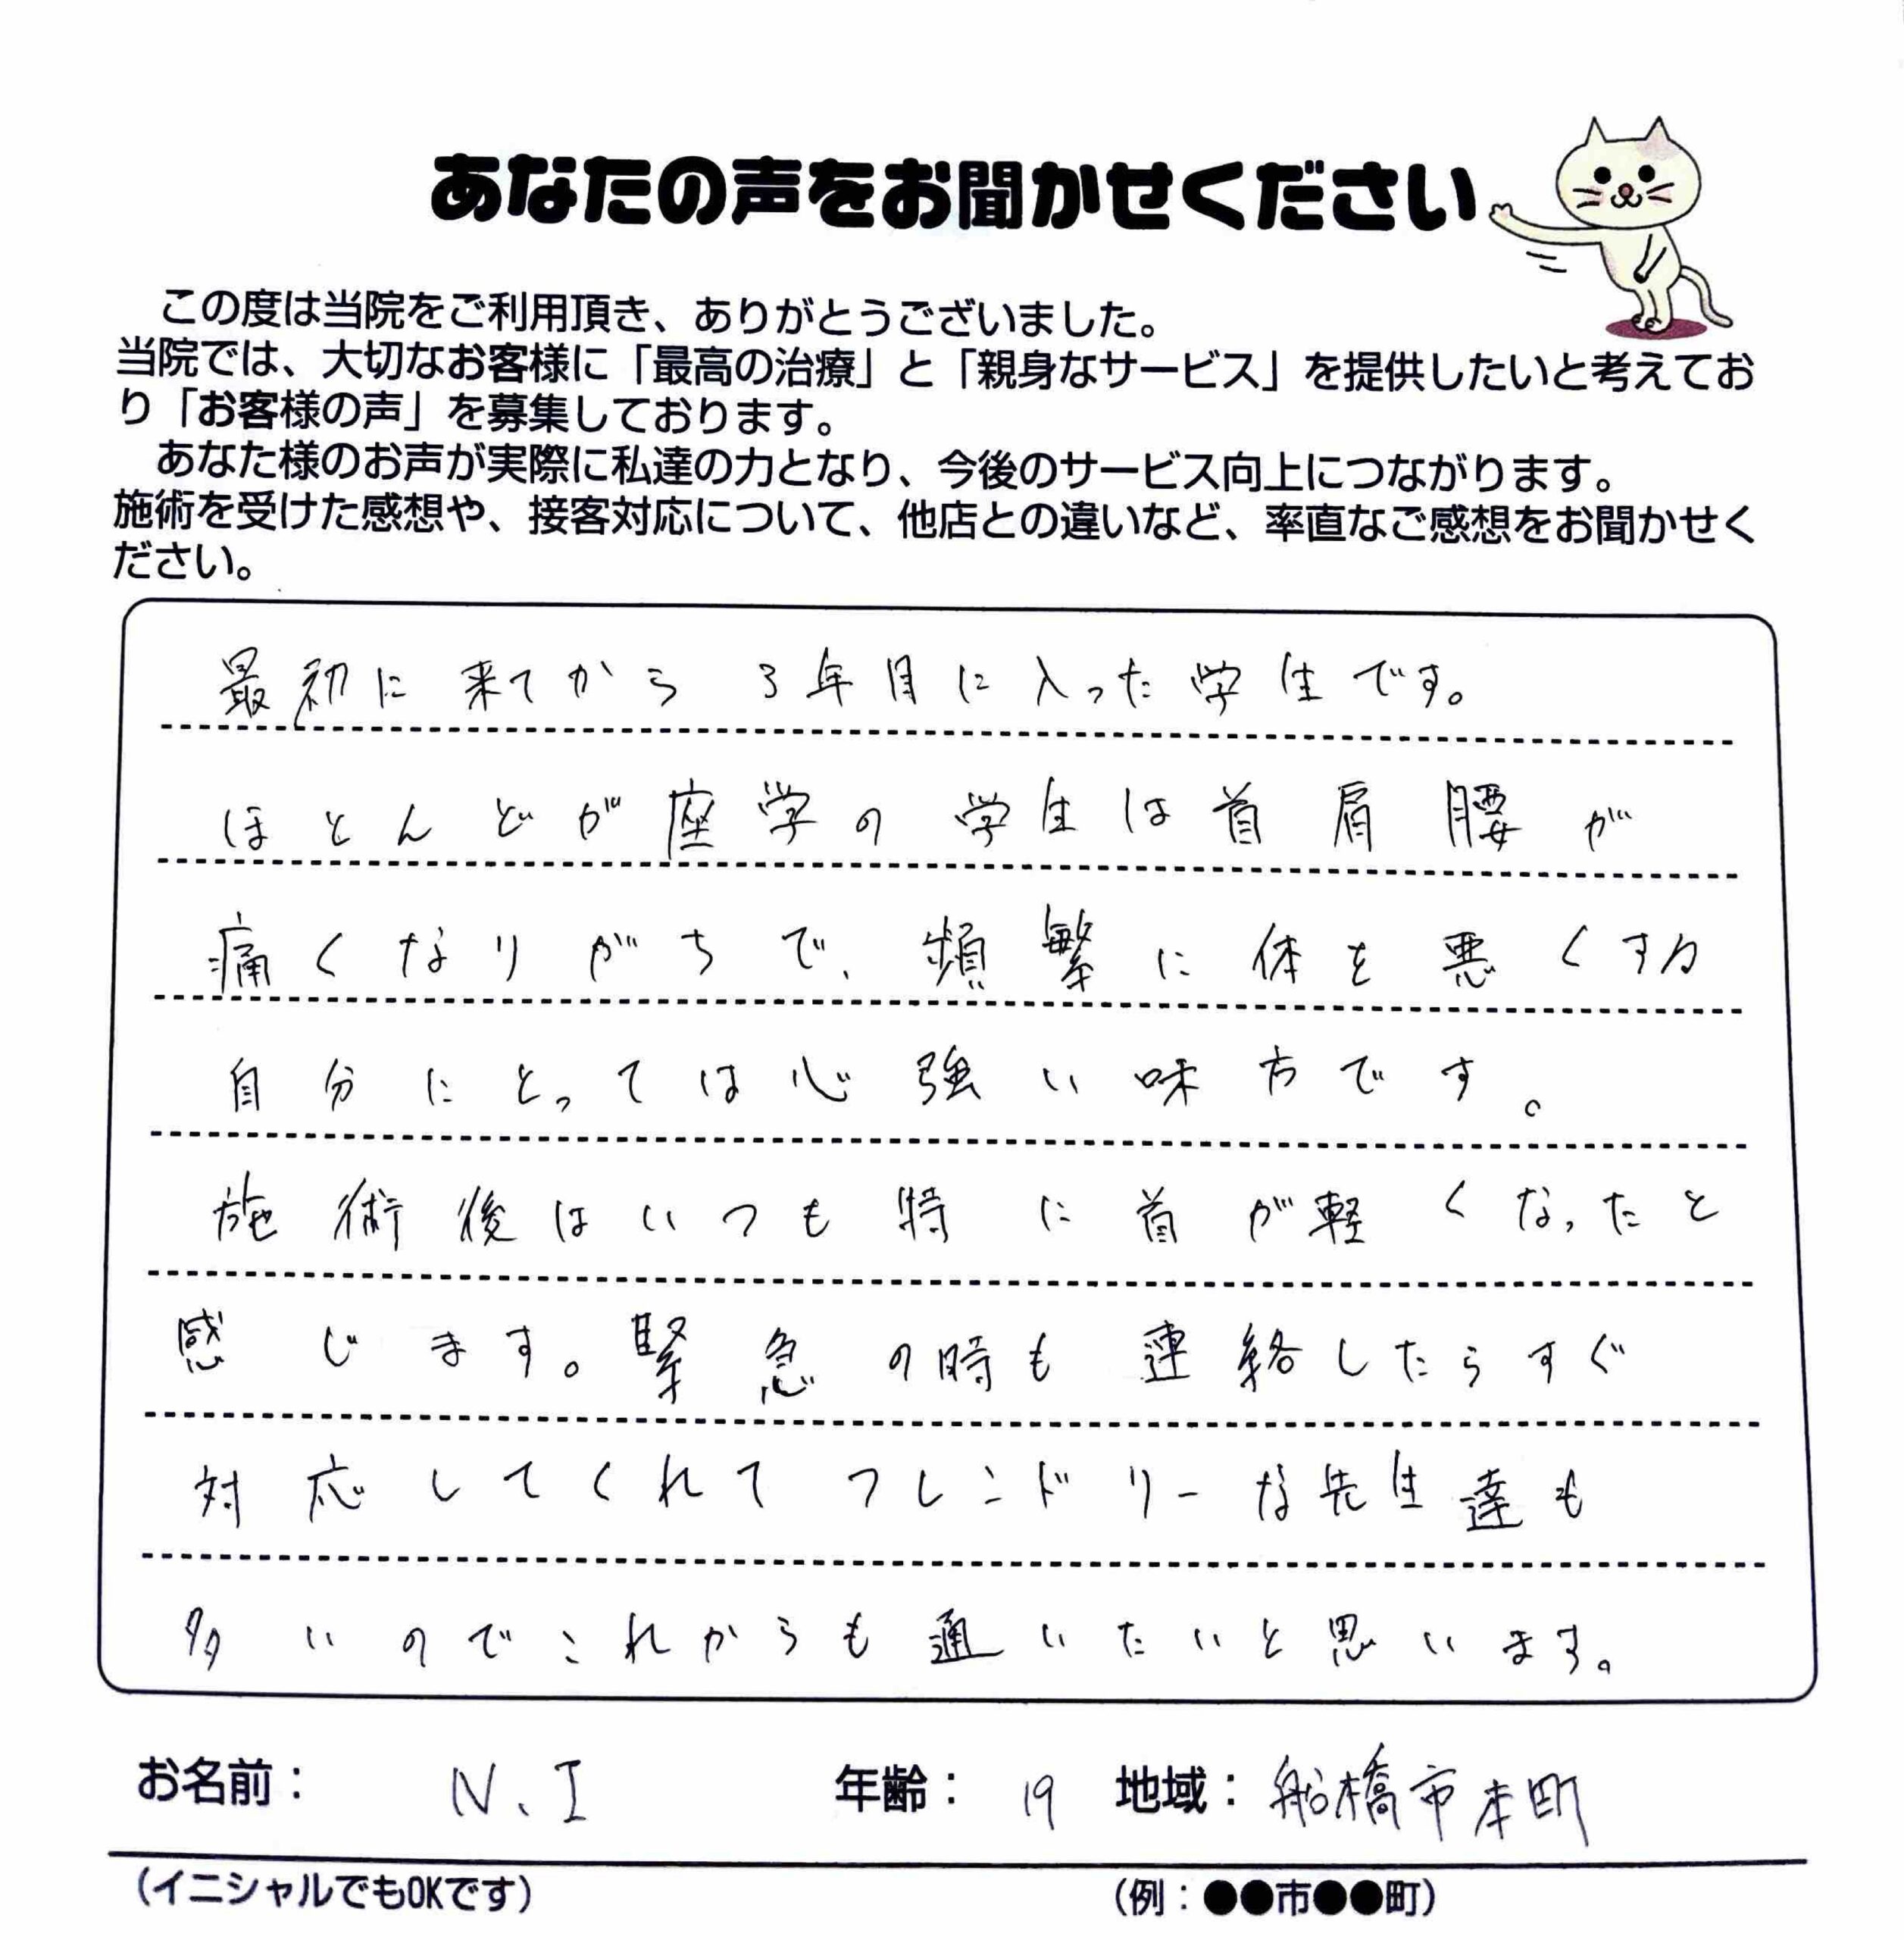 あなたの声をお聞かせください
この度は当院をご利用頂き、ありがとうございました。
当院では、大切なお客様に「最高の治療」と「親身なサービス」を提供したいと考えてお
り「お客様の声」を募集しております。
あなた様のお声が実際に私達の力となり、今後のサービス向上につながります。
施術を受けた感想や、接客対応について、他店との違いなど、率直なご感想をお聞かせく
ださい。
最初に来てから3年目に入った学生です。
ほとんどが座学の学生は首肩腰が
痛くなりがちで、頻繁に体を悪くする
自分にとっては心強い味方です。
施術後はいつも特に首が軽くなったと
感じます。緊急の時も連絡したらすぐ
対応してくれてフレンドリーな先生達も
多いのでこれからも通いたいと思います。
お名前： N.I 年齢： 19 地域： 船橋市本町
（イニシャルでもOKです） （例：●●市●●町）